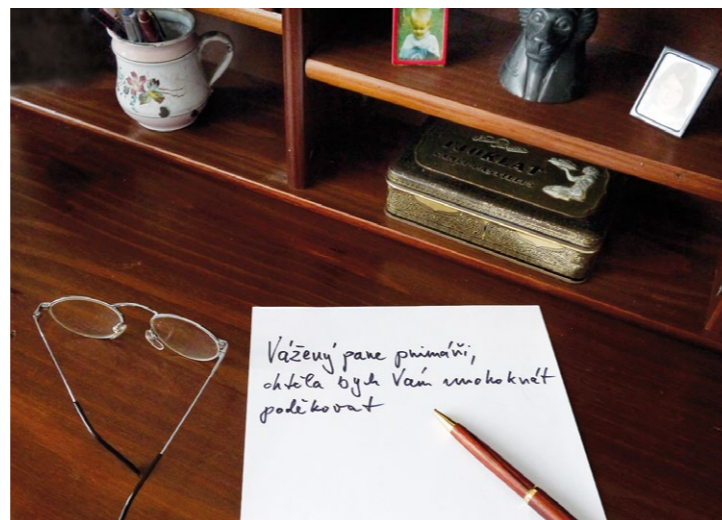 Vážený pane primáři,
chtěla bych Vám mnohokrát
poděkovat